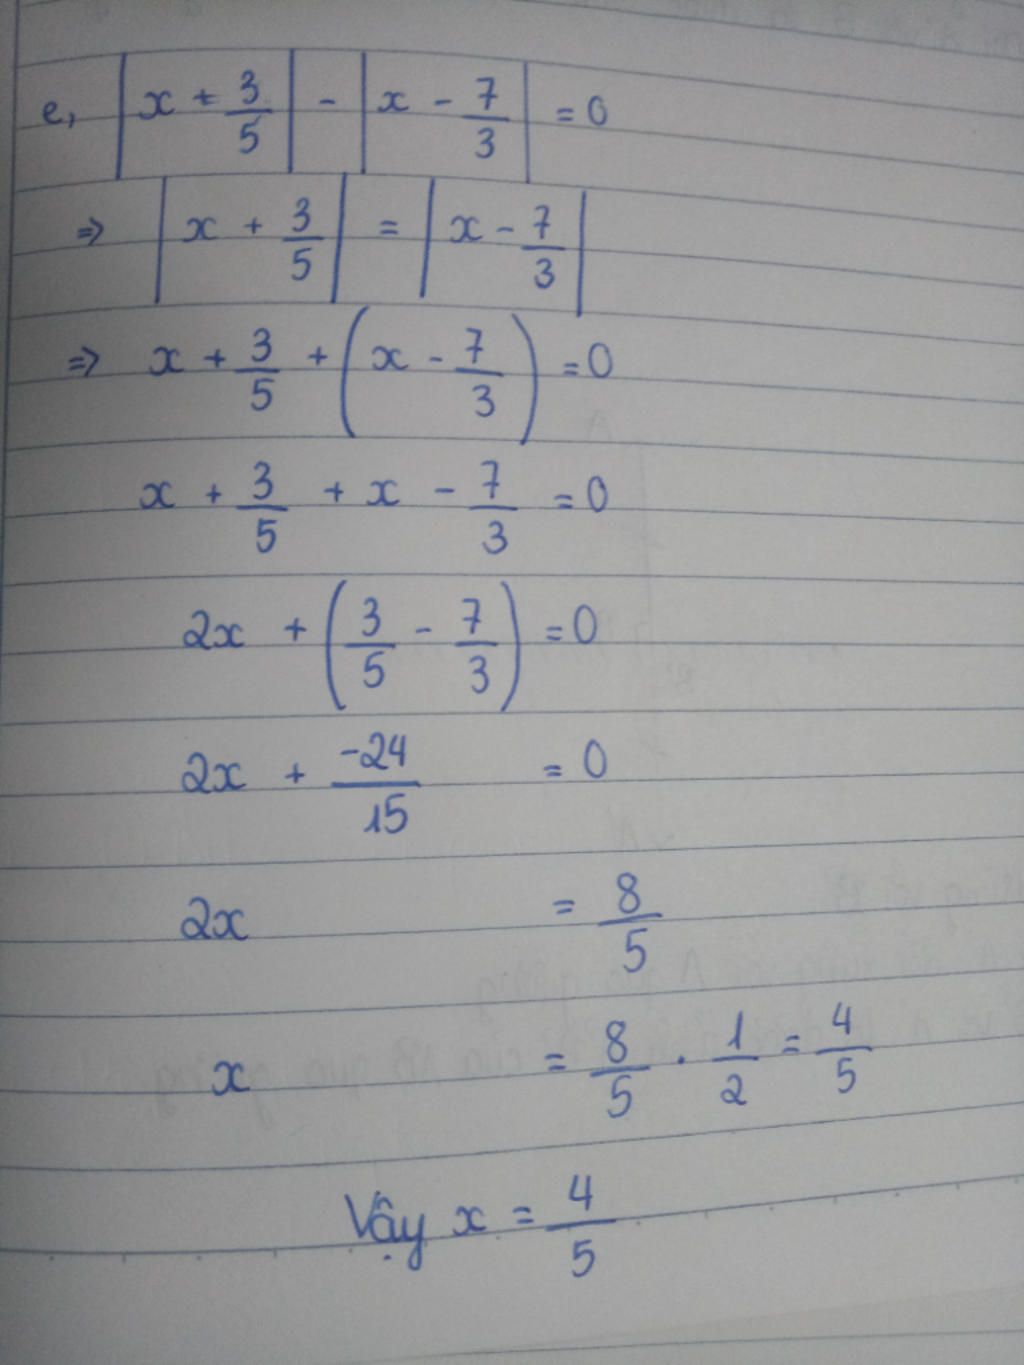 e, |x + 3/5| - |x - 7/3| = 0
=> |x + 3/5| = |x - 7/3|
=> x + 3/5 + (x - 7/3) = 0
x + 3/5 + x - 7/3 = 0
2x + (3/5 - 7/3) = 0
2x + -24/15 = 0
2x = 8/5
x = 8/5 . 1/2 = 4/5
Vậy x = 4/5